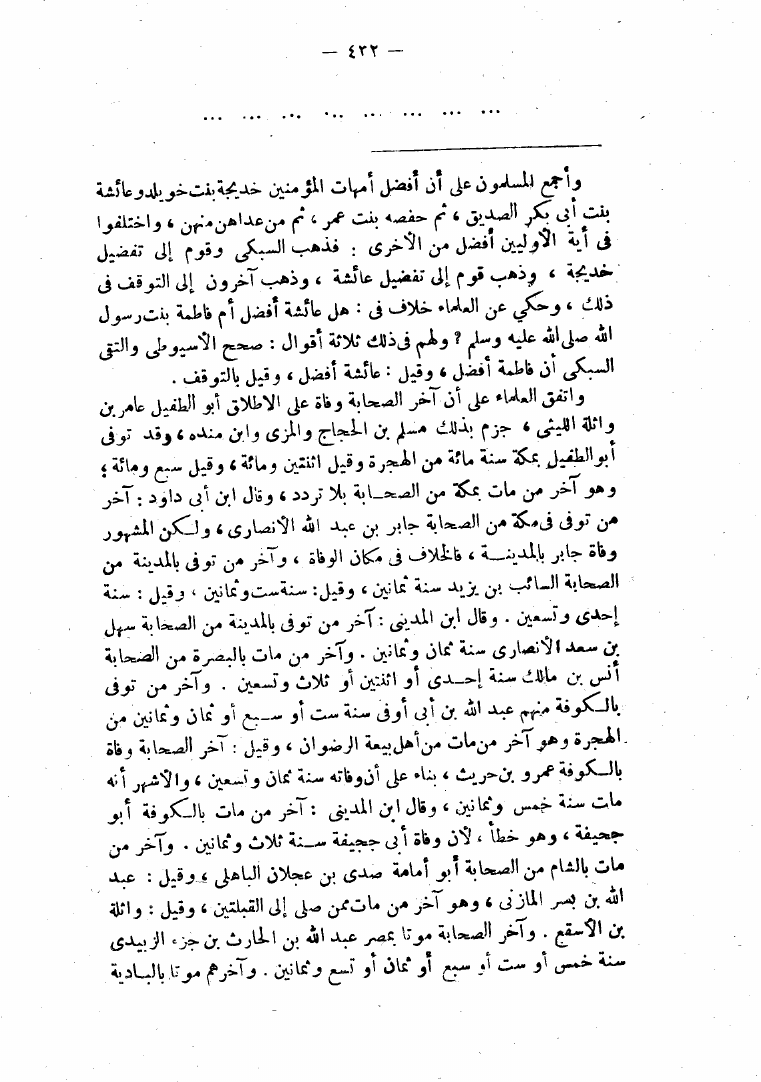 — ٤٣٢ —
... ... ... ... ... ... ... ...
وأجمع المسلمون على أن أفضل أمهات المؤمنين خديجة بنت خويلد وعائشة
بنت أبى بكر الصديق ، ثم حفصه بنت عمر ، ثم من عداهن منهن ، واختلفوا
فى أية الأوليين أفضل من الأخرى : فذهب السبكى وقوم إلى تفضيل
خديجة ، وذهب قوم إلى تفضيل عائشة ، وذهب آخرون إلى التوقف فى
ذلك ، وحكي عن العلماء خلاف فى : هل عائشة أفضل أم فاطمة بنت رسول
الله صلى الله عليه وسلم ؟ ولهم فى ذلك ثلاثة أقوال : صحح الأسيوطى والتقى
السبكى أن فاطمة أفضل ، وقيل : عائشة أفضل ، وقيل بالتوقف .
واتفق العلماء على أن آخر الصحابة وفاة على الاطلاق أبو الطفيل عامر بن
واثلة الليثى ، جزم بذلك مسلم بن الحجاج والمزى وابن منده ، وقد توفى
أبو الطفيل بمكة سنة مائة من الهجرة وقيل اثنتين ومائة ، وقيل سبع ومائة ؛
وهو آخر من مات بمكة من الصحابة بلا تردد ، وقال ابن أبى داود : آخر
من توفى فى مكة من الصحابة جابر بن عبد الله الأنصارى ، ولكن المشهور
وفاة جابر بالمدينة ، فالخلاف فى مكان الوفاة ، وآخر من توفى بالمدينة من
الصحابة السائب بن يزيد سنة ثمانين ، وقيل : سنة ست وثمانين ، وقيل : سنة
إحدى وتسعين . وقال ابن المدينى : آخر من توفى بالمدينة من الصحابة سهل
بن سعد الأنصارى سنة ثمان وثمانين . وآخر من مات بالبصرة من الصحابة
أنس بن مالك سنة إحدى أو اثنتين أو ثلاث وتسعين . وآخر من توفى
بالكوفة منهم عبد الله بن أبى أوفى سنة ست أو سبع أو ثمان وثمانين من
الهجرة وهو آخر من مات من أهل بيعة الرضوان ، وقيل : آخر الصحابة وفاة
بالكوفة عمرو بن حريث ، بناء على أن وفاته سنة ثمان وتسعين ، والأشهر أنه
مات سنة خمس وثمانين ، وقال ابن المدينى : آخر من مات بالكوفة أبو
جحيفة ، وهو خطأ ، لأن وفاة أبى جحيفة سنة ثلاث وثمانين . وآخر من
مات بالشام من الصحابة أبو أمامة صدى بن عجلان الباهلى ، وقيل : عبد
الله بن بسر المازنى ، وهو آخر من مات ممن صلى إلى القبلتين ، وقيل : واثلة
بن الأسقع . وآخر الصحابة موتا بمصر عبد الله بن الحارث بن جزء الزبيدى
سنة خمس أو ست أو سبع أو ثمان أو تسع وثمانين . وآخرهم موتا بالبادية